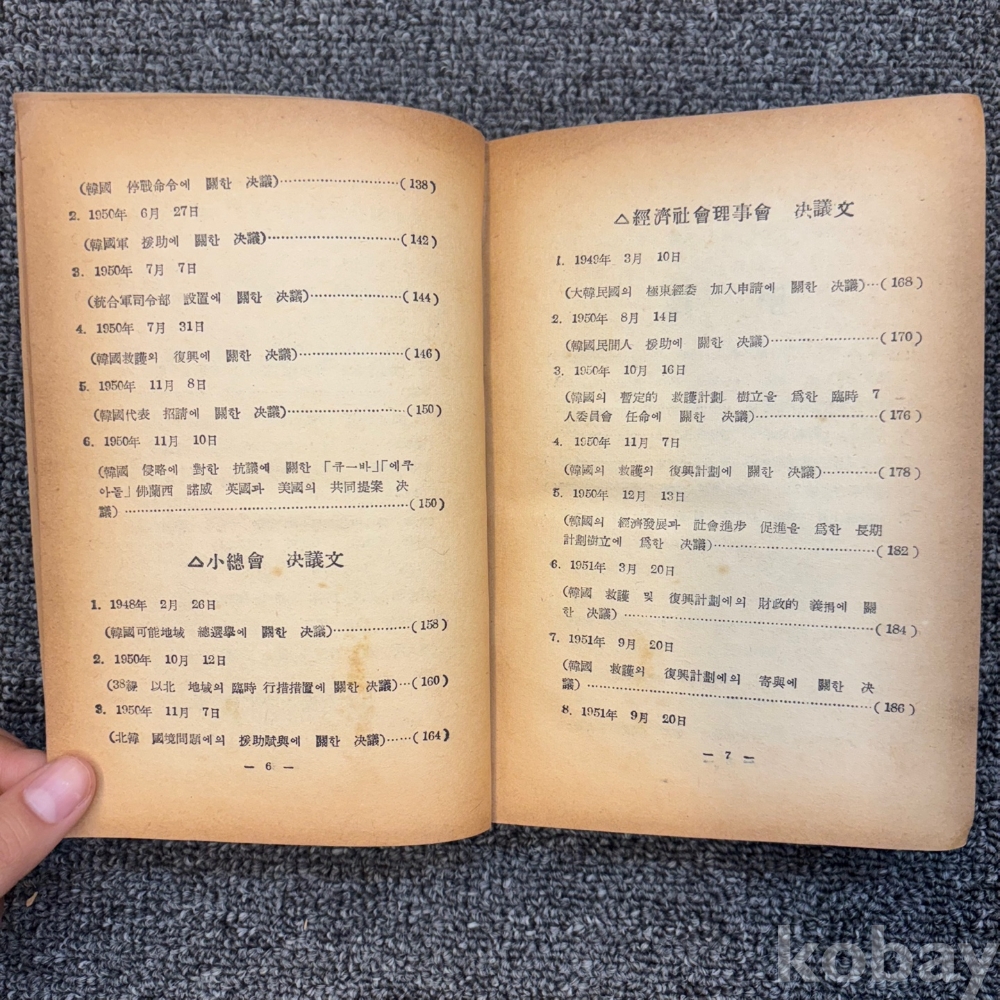 (韓國 停戰命令에 關한 決議)……………………(138)
2. 1950年 6月 27日
(韓國軍 援助에 關한 決議)………………………(142)
3. 1950年 7月 7日
(統合軍司令部 設置에 關한 決議)………………(144)
4. 1950年 7月 31日
(韓國救護의 復興에 關한 決議)…………………(146)
5. 1950年 11月 8日
(韓國代表 招請에 關한 決議)……………………(150)
6. 1950年 11月 10日
(韓國 侵略에 對한 抗議에 關한 「큐ー바」「에쿠
아돌」佛蘭西 諾威 英國과 美國의 共同提案 決
議)……………………………………………………(150)
△小總會 決議文
1. 1948年 2月 26日
(韓國可能地域 總選擧에 關한 決議)……………(158)
2. 1950年 10月 12日
(38線 以北 地域의 臨時 行措措置에 關한 決議)…(160)
3. 1950年 11月 7日
(北韓 國境問題에의 援助賦與에 關한 決議)……(164)
— 6 —
△經濟社會理事會 決議文
1. 1949年 3月 10日
(大韓民國의 極東經委 加入申請에 關한 決議)…(168)
2. 1950年 8月 14日
(韓國民間人 援助에 關한 決議)…………………(170)
3. 1950年 10月 16日
(韓國의 暫定的 救護計劃 樹立을 爲한 臨時 7
人委員會 任命에 關한 決議)………………………(176)
4. 1950年 11月 7日
(韓國의 救護의 復興計劃에 關한 決議)…………(178)
5. 1950年 12月 13日
(韓國의 經濟發展과 社會進步 促進을 爲한 長期
計劃樹立에 爲한 決議)……………………………(182)
6. 1951年 3月 20日
(韓國 救護 및 復興計劃에의 財政的 義捐에 關
한 決議)………………………………………………(184)
7. 1951年 9月 20日
(韓國 救護의 復興計劃에의 寄與에 關한 決
議)……………………………………………………(186)
8. 1951年 9月 20日
— 7 —
kobay